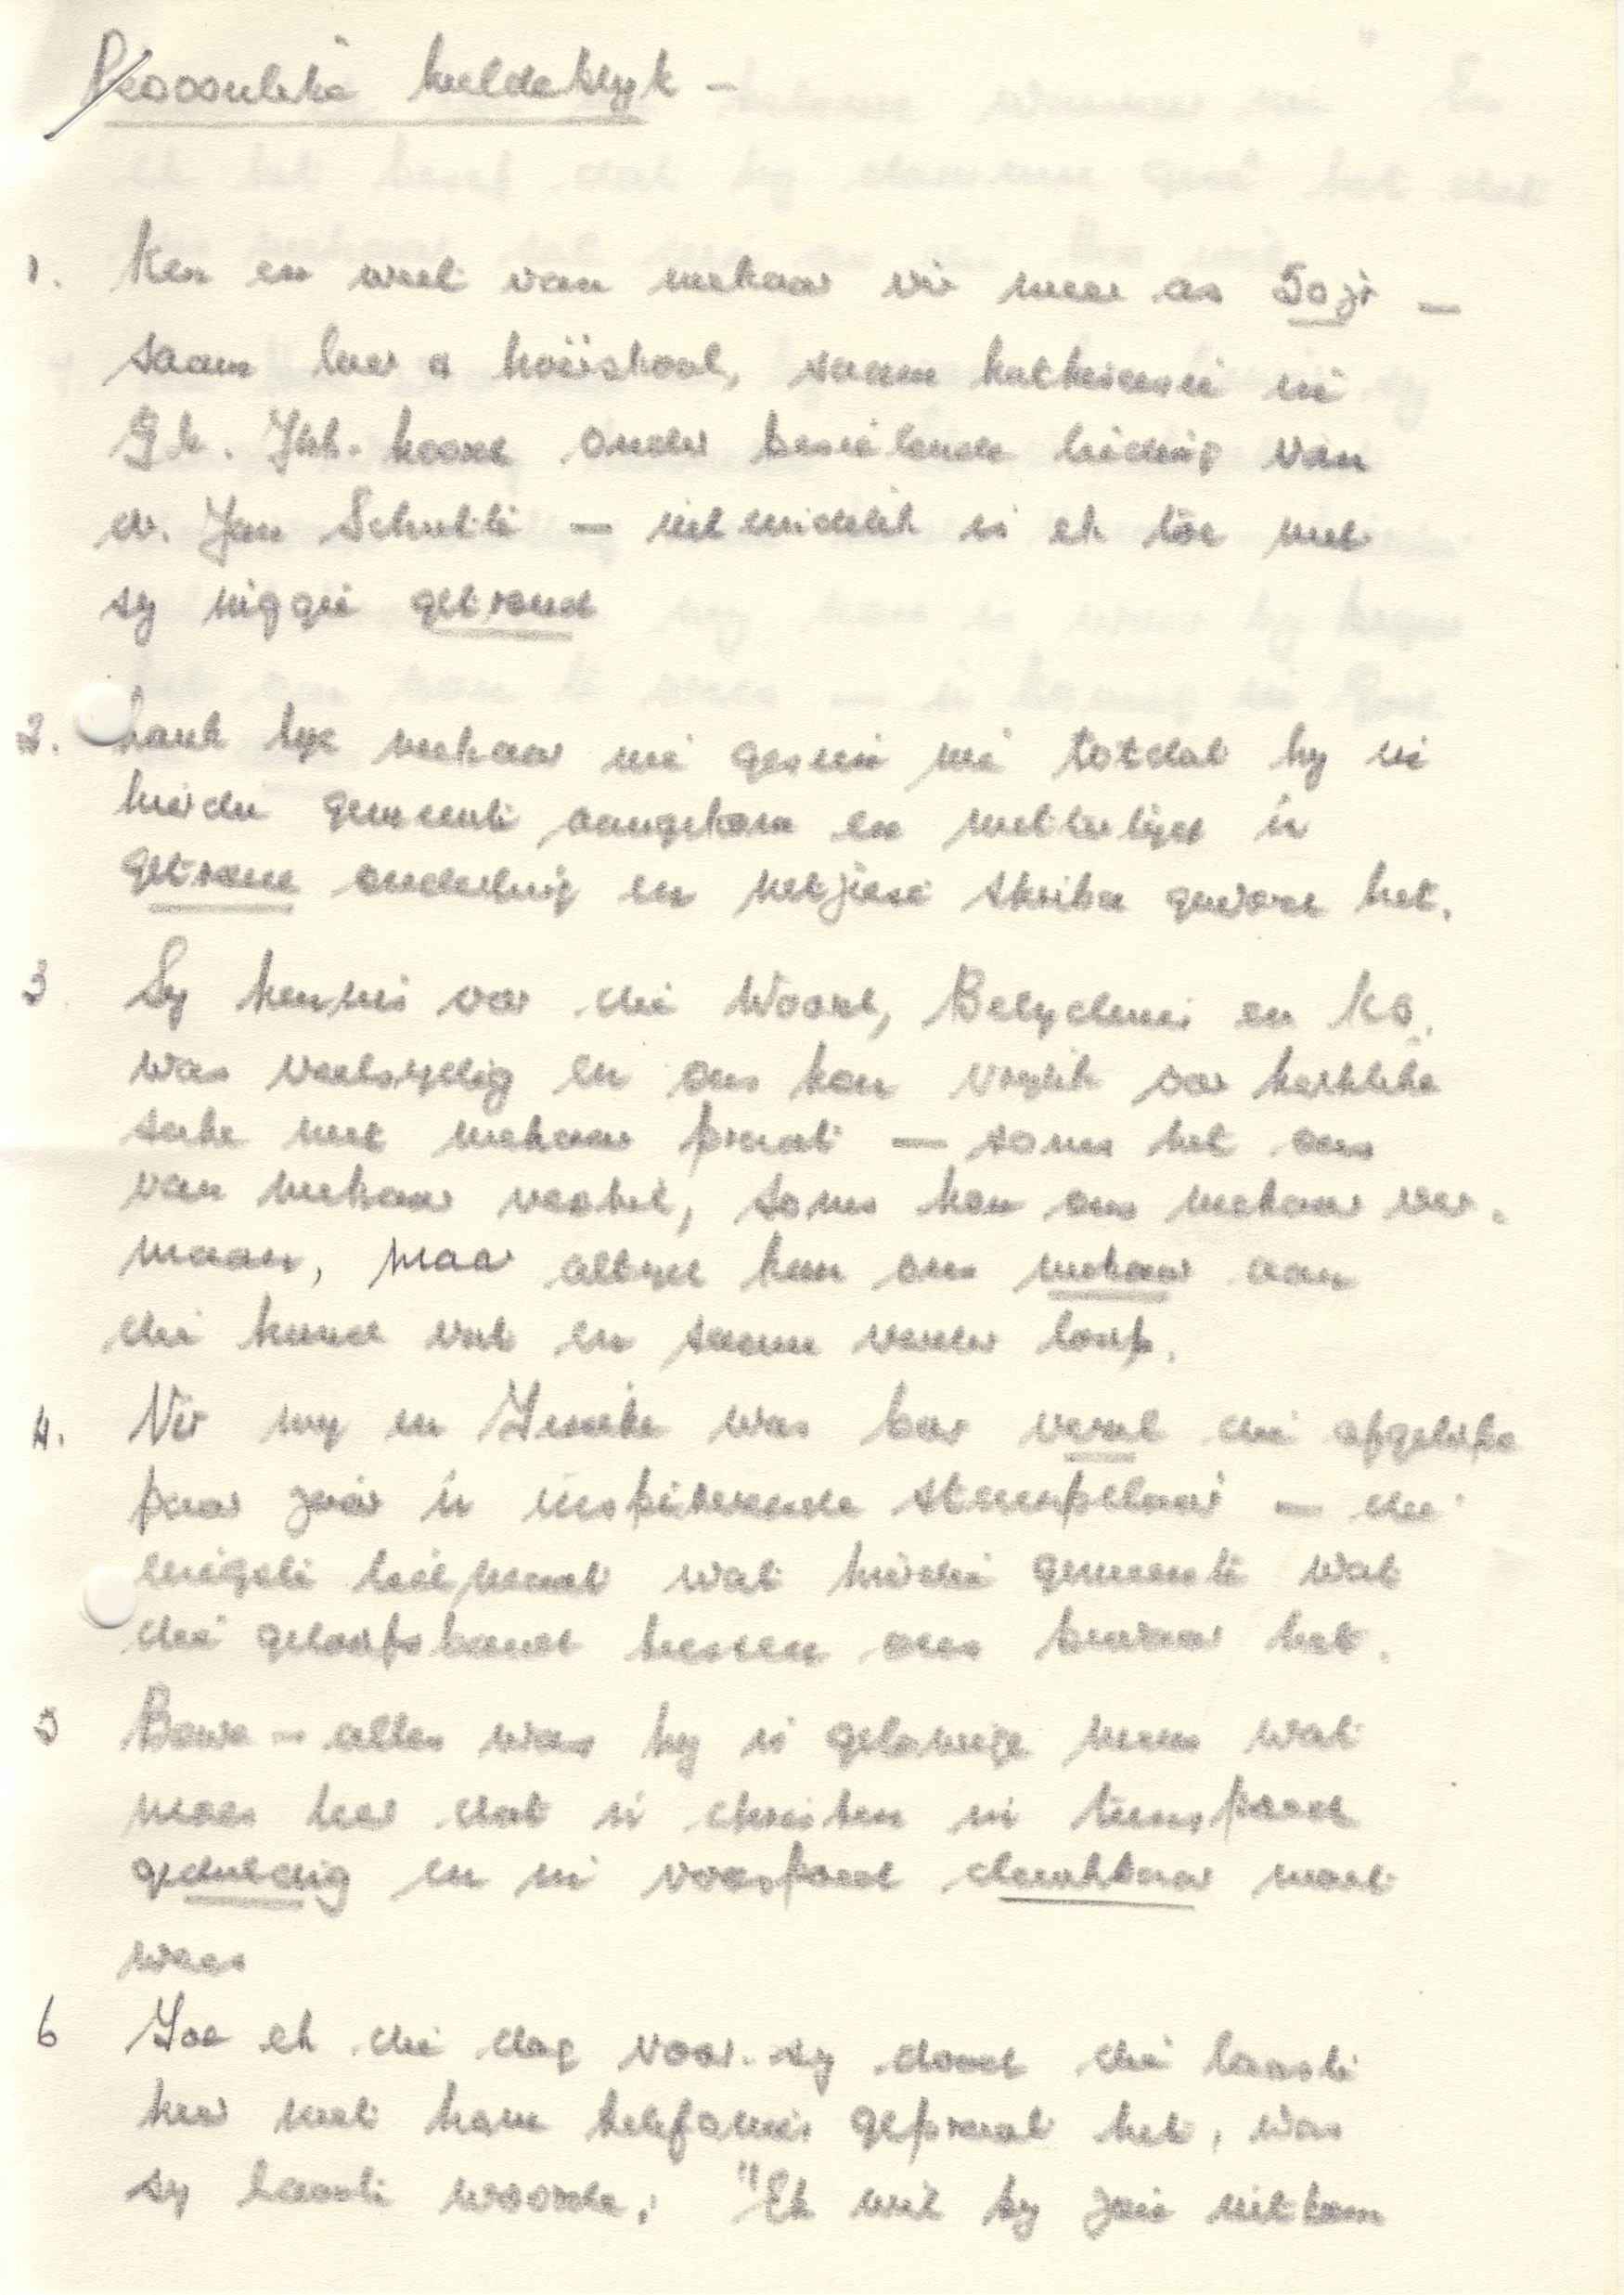 Persoonlike huldeblyk -
1. Ken en weet van mekaar vir meer as 50 jr -
saam leer a hoërskool, saam kategesasie in
Gk. Jhb. Noord onder besielende leiding van
dr. Jan Schutte - intmiddelik is ek toe met
sy niggie getroud
2. Lank tyd mekaar nie gesien nie totdat hy in
hierdie gemeente aangekom en mettertyd 'n
getroue ouderling en netjiese skriba geword het.
3 Sy kennis oor die Woord, Belydenis en KO.
was veelsydig en ons kon vryelik oor kerklike
sake met mekaar praat - soms het ons
van mekaar verskil, soms kon ons mekaar ver-
maan, maar altyd kon ons mekaar aan
die hand vat en saam verder loop.
4. Vir my en was veral die afgelope
paar jaar 'n inspirerende steunpilaar - die
enigste lidmaat wat hierdie gemeente wat
die geloofsband tussen ons bewaar het.
5 Bowe-alles was hy 'n gelowige mens wat
moes leer dat 'n christen in teenspoed
geduldig en in voorspoed dankbaar moet
wees
6 Toe ek die dag voor sy dood die laaste
keer met hom telefonies gepraat het, was
sy laaste woorde: "Ek wil by jou uitkom